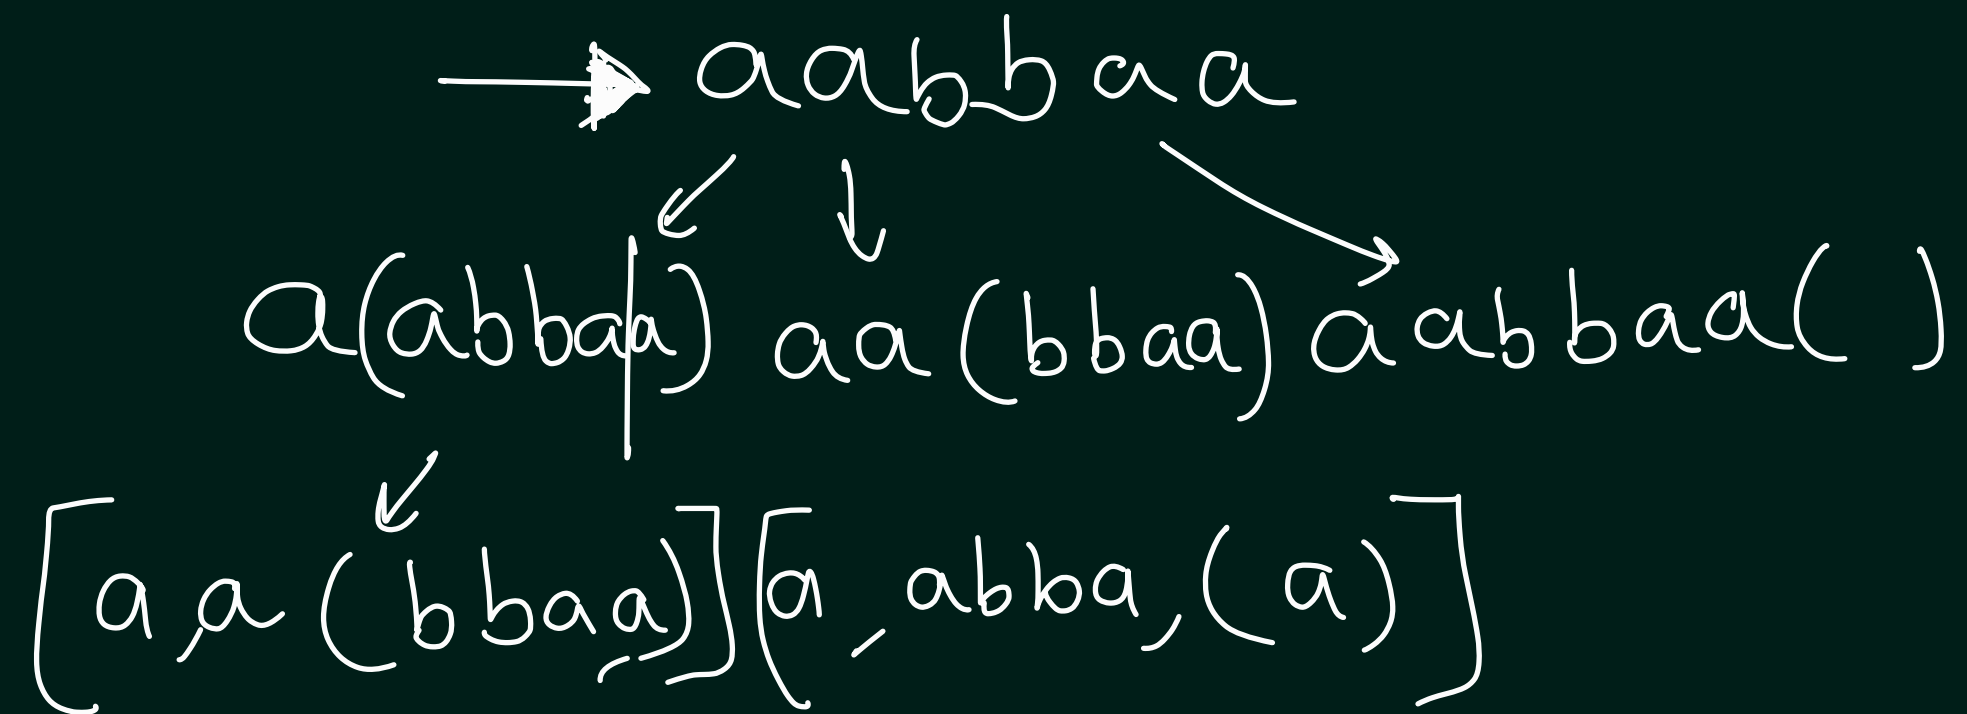 aabbaa
a(abbaa) aa(bbaa) aabbaa( )
[a,a(bbaa,)] [a, abba,(a)]